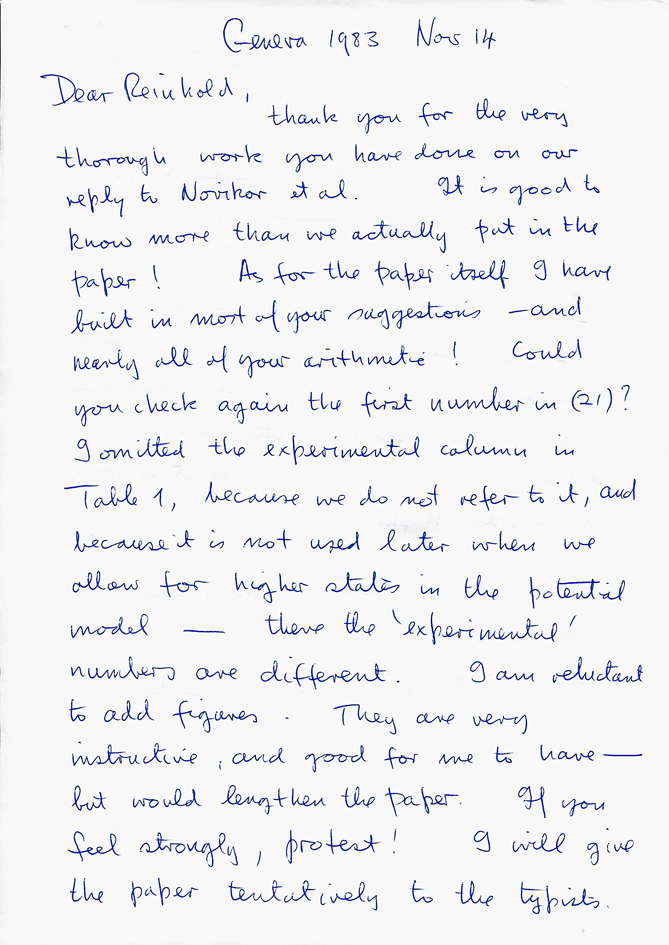 Geneva 1983 Nov 14
Dear Reinhold,
thank you for the very
thorough work you have done on our
reply to Novikov et al. It is good to
know more than we actually put in the
paper! As for the paper itself I have
built in most of your suggestions — and
nearly all of your arithmetic! Could
you check again the first number in (21)?
I omitted the experimental column in
Table 1, because we do not refer to it, and
because it is not used later when we
allow for higher states in the potential
model — there the 'experimental'
numbers are different. I am reluctant
to add figures. They are very
instructive, and good for me to have —
but would lengthen the paper. If you
feel strongly, protest! I will give
the paper tentatively to the typists.